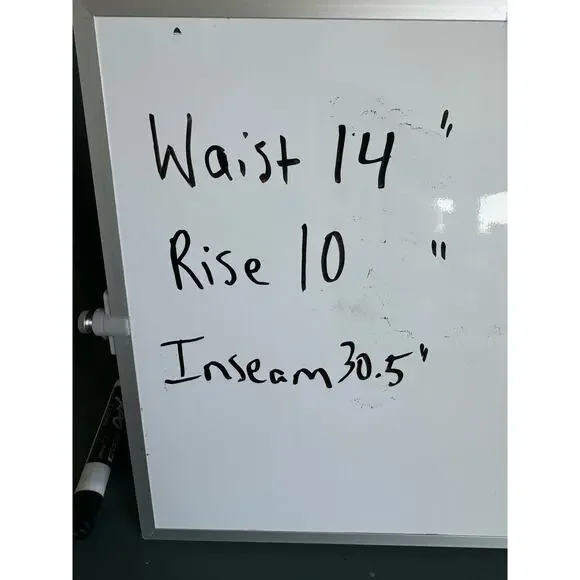 Waist 14 "
Rise 10 "
Inseam 30.5"